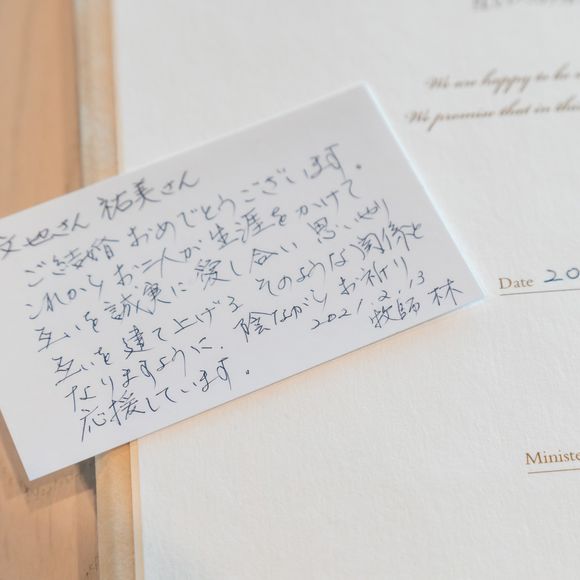 文也さん 祐美さん
ご結婚おめでとうございます。
これから お二人が 生涯をかけて
互いを 誠実に 愛し合い 思いやり
互いを 建て上げる そのような関係と
なりますように、陰ながら お祈り
応援しています。
2021.2.13
牧師 林
We are happy to be
We promise that in the
Date 20
Ministe